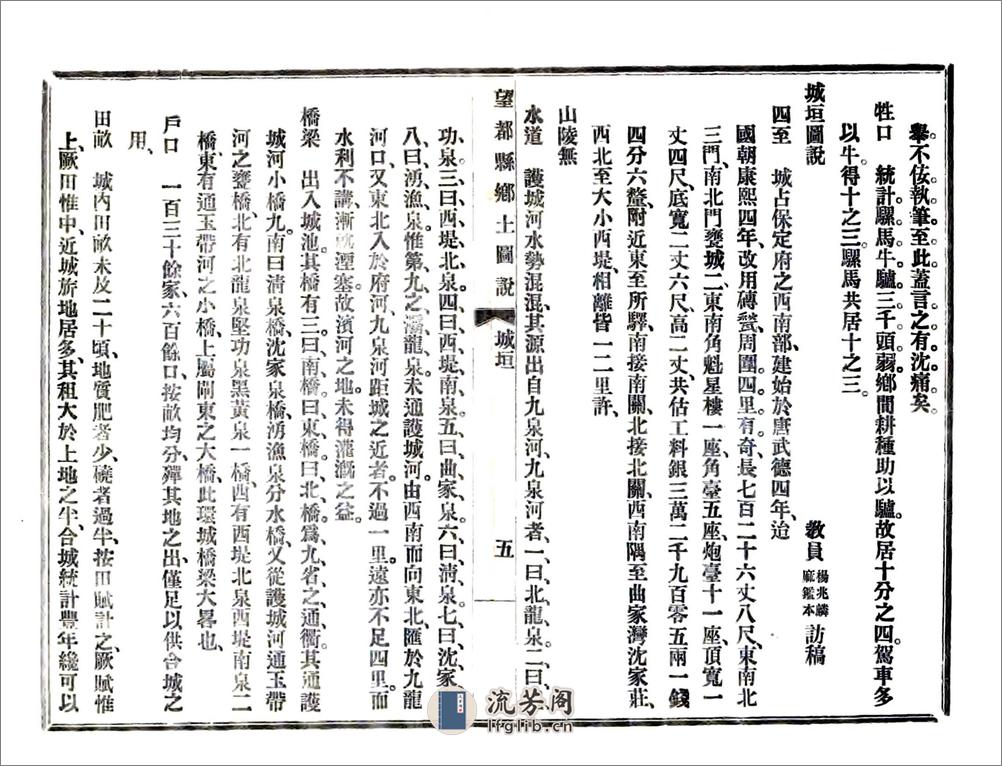 舉。不佞執筆至此蓋言之有沈痛矣。
牲口　統計騾馬牛驢三千頭弱、鄉間耕種助以驢、故居十分之四。駕車多
以牛、得十之三。騾馬共居十之三。
城垣圖說　教員　楊兆麟　麻鑑本　訪稿
四至　城占保定府之西南部、建始於唐武德四年、迨
國朝康熙四年、改用磚甃、周圍四里有奇、長七百二十六丈八尺、東南北
三門、南北門甕城二、東南角魁星樓一座、角臺五座、炮臺十一座、頂寬一
丈四尺、底寬二丈六尺、高二丈、共估工料銀三萬二千九百零五兩一錢
四分六釐、附近東至所驛、南接南關、北接北關、西南隅至曲家灣沈家莊、
西北至大小西堤、相離皆一二里許、
山陵無
水道　護城河水勢混混、其源出自九泉河、九泉河者、一曰北龍泉、二曰、
望都縣鄉土圖說　城垣　五
功泉、三曰西堤北泉、四曰西堤南泉、五曰曲家泉、六曰淸泉、七曰沈家、
八曰湧漁泉、惟第九之龍泉未通護城河、由西南而向東北、匯於九龍
河口、又東北入於府河、九泉河距城之近者、不過一里、遠亦不足四里、而
水利不講、漸就湮塞、故濱河之地、未得灌漑之益。
橋梁　出入城池、其橋有三、曰南橋、曰東橋、曰北橋、爲九省之通衢、其通護
城河小橋九、南曰淸泉橋、沈家泉橋、湧漁泉分水橋、又從護城河通玉帶
河之甕橋、北有北龍泉堅功泉黑黃泉一橋、西有西堤北泉西堤南泉二
橋、東有通玉帶河之小橋、上屬閘東之大橋、此環城橋梁大畧也、
戶口　一百三十餘家、六百餘口、按畝均分、殫其地之出、僅足以供合城之
用、
田畝　城內田畝未及二十頃、地質肥者少、磽者過半、按田賦計之、厥賦惟
上、厥田惟中、近城旂地居多、其租大於上地之半、合城統計豐年纔可以
流芳阁
lfglib.cn